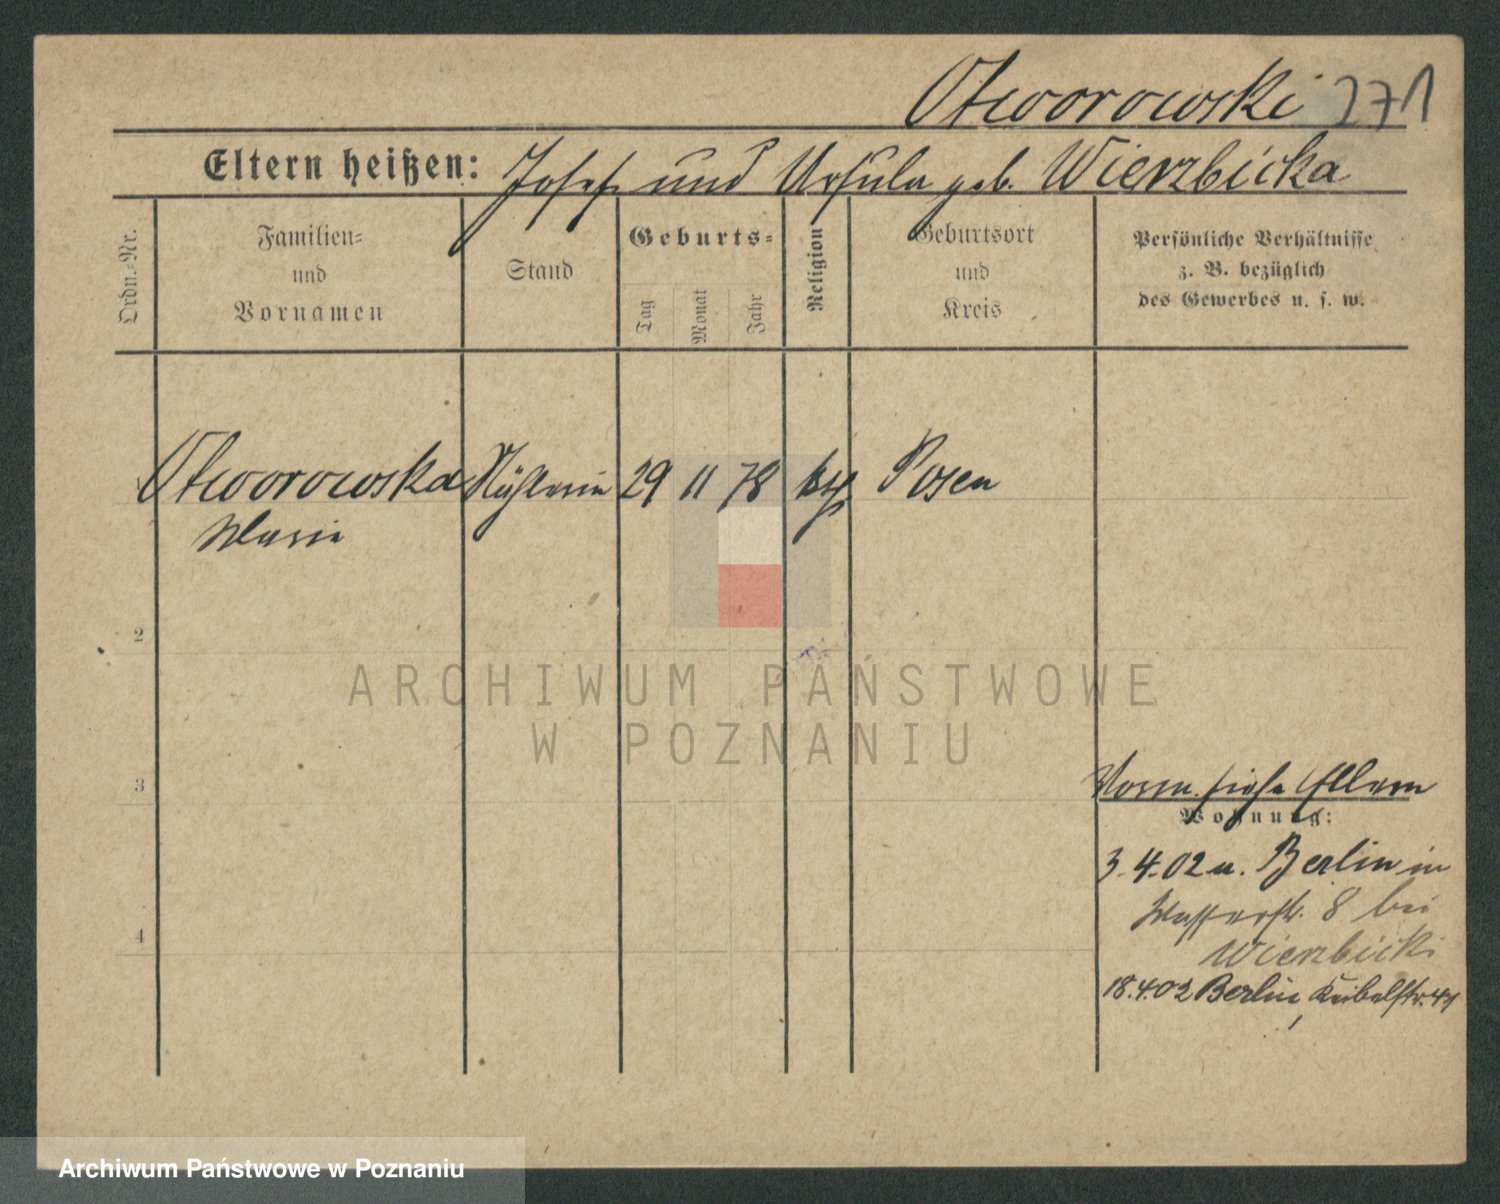 Otworowski 271
Eltern heißen: Josef und Ursula geb. Wierzbicka
Ordn.-Nr.
Familien-
und
Vornamen
Stand
Geburts-
Tag
Monat
Jahr
Religion
Geburtsort
und
Kreis
Persönliche Verhältnisse
z. B. bezüglich
des Gewerbes u. s. w.
Otworowska Nähterin 29 11 78 kth Posen
Marie
2
3
4
Vorm. siehe Eltern
Wohnung:
3.4.02 v. Berlin in
Wasserstr. 8 bei
Wierzbicki
18.4.02 Berlin, Keibelstr. 41
ARCHIWUM PAŃSTWOWE
W POZNANIU
Archiwum Państwowe w Poznaniu